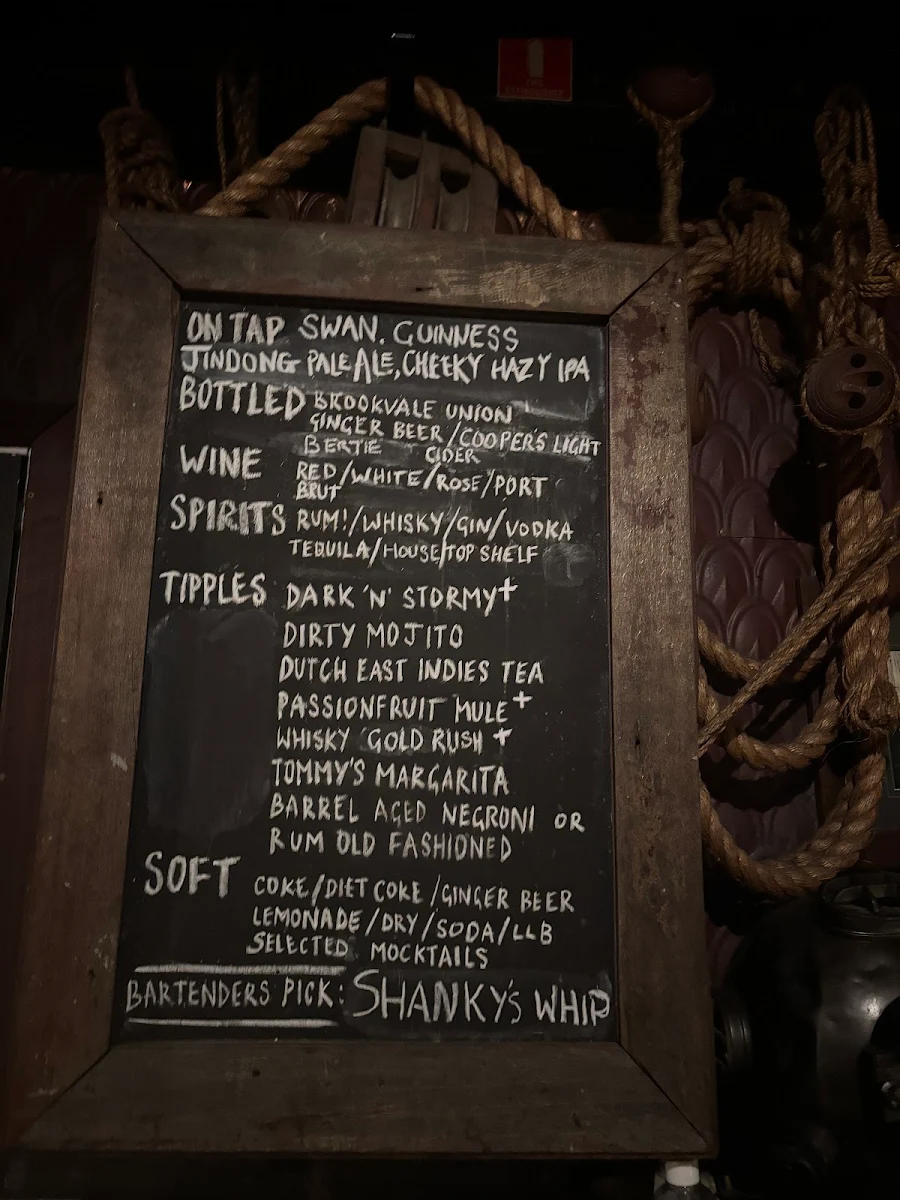 ON TAP SWAN. GUINNESS
JINDONG PALE ALE, CHEEKY HAZY IPA
BOTTLED BROOKVALE UNION
GINGER BEER/COOPER'S LIGHT
BERTIE CIDER
WINE RED/WHITE/ROSE/PORT
BRUT
SPIRITS RUM!/WHISKY/GIN/VODKA
TEQUILA/HOUSE/TOP SHELF
TIPPLES DARK 'N' STORMY+
DIRTY MOJITO
DUTCH EAST INDIES TEA
PASSIONFRUIT MULE+
WHISKY GOLD RUSH +
TOMMY'S MARGARITA
BARREL AGED NEGRONI OR
RUM OLD FASHIONED
SOFT COKE/DIET COKE/GINGER BEER
LEMONADE/DRY/SODA/LLB
SELECTED MOCKTAILS
BARTENDERS PICK: SHANKY'S WHIP